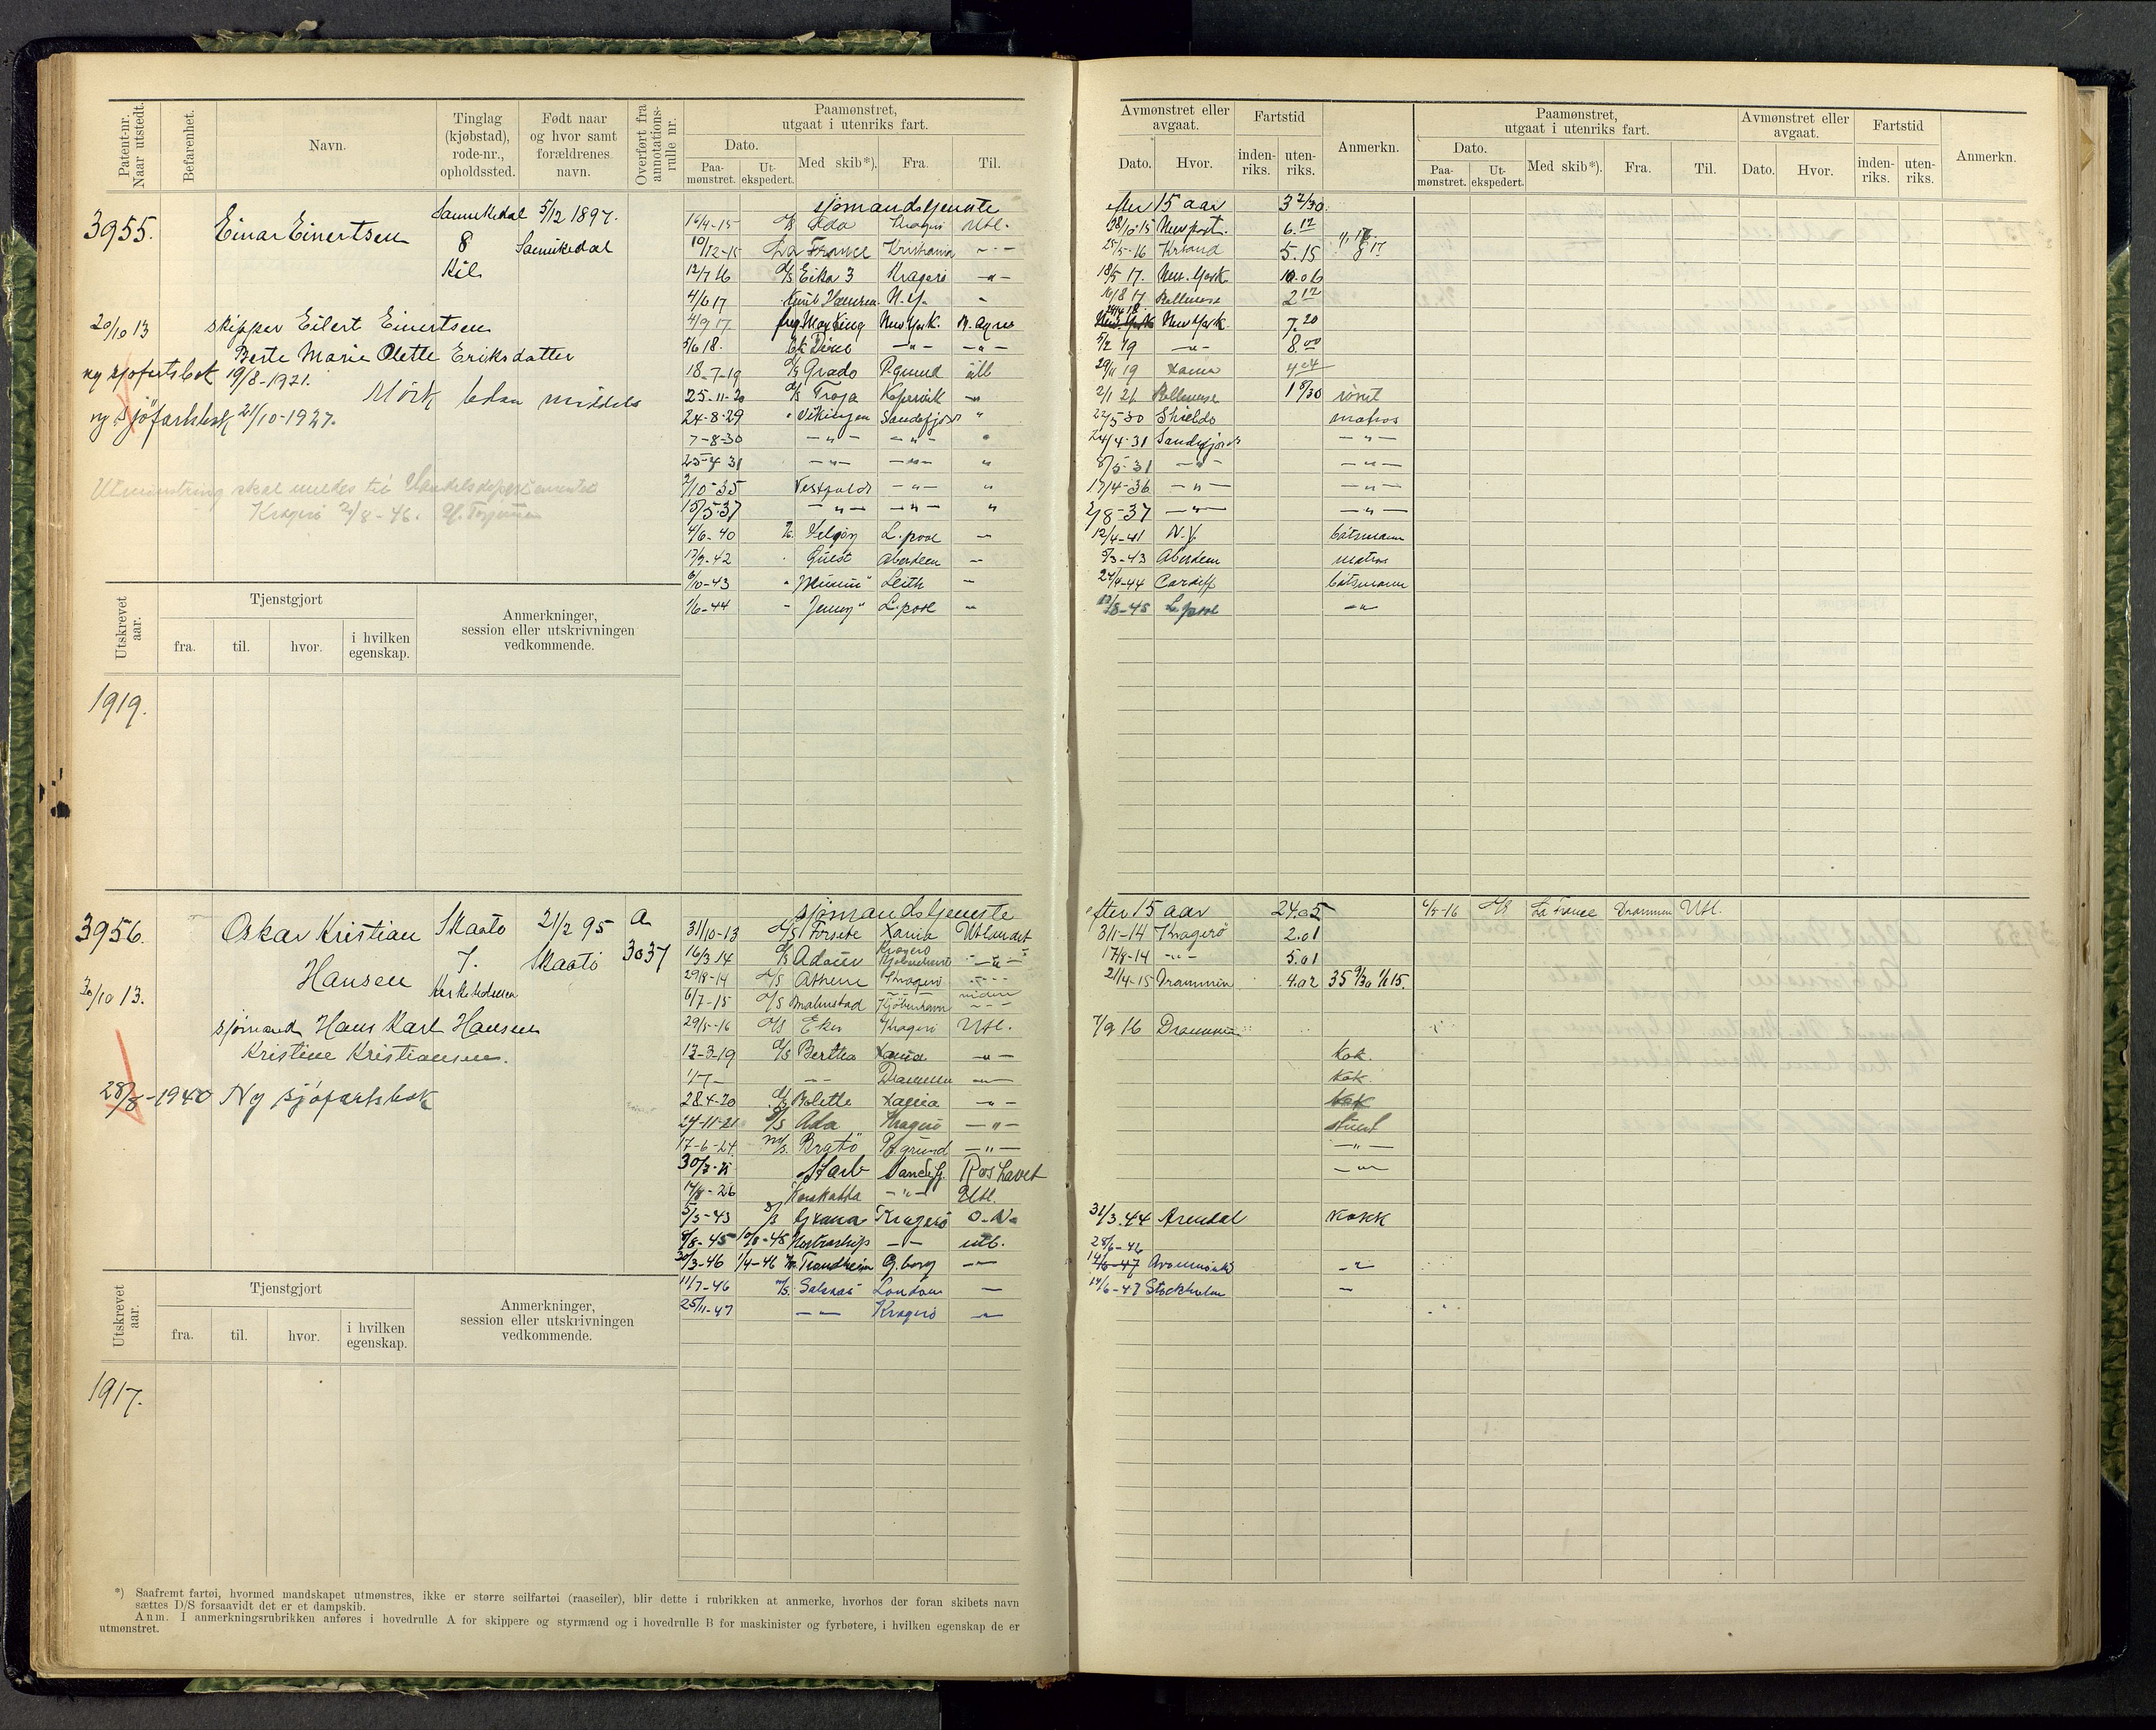 Patent-nr. Naar utstedt.
Befarenhet.
Navn.
Tinglag (kjøbstad), rode-nr., opholdssted.
Født naar og hvor samt forældrenes navn.
Overført fra annotations-rulle nr.
Paamønstret, utgaat i utenriks fart.
Dato.
Paa-mønstret.
Ut-ekspedert.
Med skib*).
Fra.
Til.
3955.
Einar Einertsen
Sannikedal
8
Kil
5/12 1897.
Sannikedal
20/10 13
skipper Eilert Einertsen
Berte Marie Olette Eriksdatter
ny sjøfartsbok 19/8-1921.
Mörk blaa middels
ny sjöfartsbok 21/10-1927.
Utmønstring skal meldes til Handelsdepartementet
Kragerö 20/8-46.
sjømandstjeneste
16/4-15 D/S Ada Kragerö Utl.
10/12-15 La France Kristiania -"-
12/7 16 D/S Eika 3 Kragerö -"-
4/6 17 Knut Hansen N.Y. "
4/9 17 May King New York. B. Ayres
5/6 18. -"- -"-
18-7-19 D/S Grado P.grund utl
25-11-20 D/S Troja Kopervik -"-
24-8-29 " Vikingen Sandefjord "
7-8-30 -"- -"- "
25-4 31 -"- -"- "
2/10-35 Vestfold -"- "
15/5-37 -"- -"- "
4/6-40 Velgen L.pool -
17/9-42 Quest Aberdeen -
6/10-43 " Mimi" Leith -
1/6-44 - Jenny" L.pool -
Utskrevet aar.
Tjenstgjort
fra.
til.
hvor.
i hvilken egenskap.
Anmerkninger, session eller utskrivningen vedkommende.
1919.
3956.
Oskar Kristian
Hansen
Skaatö
7.
21/2 95
Skaatö
a
3037
30/10 13.
sjømand Hans Karl Hansen
Kristine Kristiansen.
28/8-1940 Ny sjöfartsbok
sjømandstjeneste
31/10-13 D/S Forsete Xania Utlandet
16/3 14 D/S Kragerö -"-
29/8-14 D/S Athene Kragerö
6/7-15 D/S Malmstad Kjöbenhavn
29/5-16 D/S Eker Kragerö Utl.
13-3-19 D/S Bertha Xania -"-
1/7- -"- Drammen -"-
28-4-20 D/S Bolette Xania -"-
24-11-21 D/S Ada Kragerö -"-
17-6-24 M/S. Bratö P.grund -"-
30/7-25 Sandefj. Rosshavet
14/8-26 Kosakatta -"- Utl.
5/3-43 D/S Grana Kragerö O-N.
8/8-45 10/8-45 Nortraship -"- utl.
30/3-46 1/4-46 Trondheim G.borg -"-
11/7-46 M/S. Salsaas London -
25/11-47 -"- Kragerö -"-
Utskrevet aar.
Tjenstgjort
fra.
til.
hvor.
i hvilken egenskap.
Anmerkninger, session eller utskrivningen vedkommende.
1917.
*) Saafremt fartøi, hvormed mandskapet utmønstres, ikke er større seilfartøi (raaseiler), blir dette i rubrikken at anmerke, hvorhos der foran skibets navn
sættes D/S forsaavidt det er et dampskib.
Anm. I anmerkningsrubrikken anføres i hovedrulle A for skippere og styrmænd og i hovedrulle B for maskinister og fyrbøtere, i hvilken egenskap de er
utmønstret.
Avmønstret eller avgaat.
Dato.
Hvor.
Fartstid
inden-riks.
uten-riks.
Anmerkn.
Paamønstret, utgaat i utenriks fart.
Dato.
Paa-mønstret.
Ut-ekspedert.
Med skib*).
Fra.
Til.
Avmønstret eller avgaat.
Dato.
Hvor.
Fartstid
inden-riks.
uten-riks.
Anmerkn.
efter 15 aar 3 2/30.
28/10-15 Newport. 6.12
25/5-16 Xrland 5.15
18/5 17. New-York 10.06
10/8 17 2 12
New York 7.20
5/2 19 -"- 8.00
29/11 19 Xania 4 24
2/1 21 1 8/30 rømt
22/5-30 Shields matros
24/4-31 Sandefjord -"-
8/5-31 -"- -"-
17/4-36 -"- -"-
2/8-37 -"- -"-
12/4-41 N.Y. båtsmann
5/3-43 Aberdeen matros
24/4-44 Cardiff båtsmann
13/8-45 L.pool -"-
efter 15 aar 24.05
4/5-16 D/S La France Drammen Utl.
3/1-14 Kragerö 2.01
17/8-14 -"- 5.01
21/4-15 Drammen 4.02 35 9/30 1/1 15.
7/9 16 Drammen
Kok.
Kok.
Kok
stuert
-"-
-"-
31/3.44 Arendal Kokk
28/6-46
14/6-47 -"-
14/6-47 Stockholm -